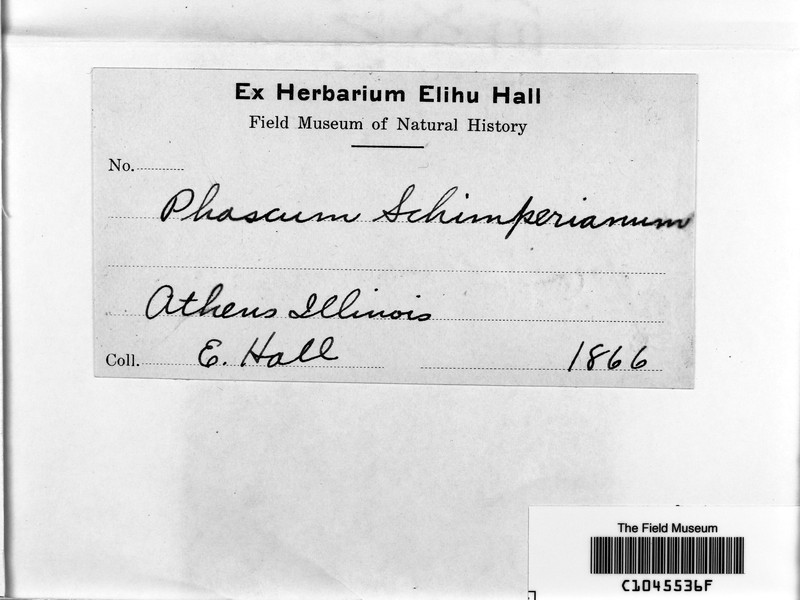 Ex Herbarium Elihu Hall
Field Museum of Natural History
No.
Phascum Schimperianum
Athens Illinois
Coll. E. Hall 1866
The Field Museum
C1045536F